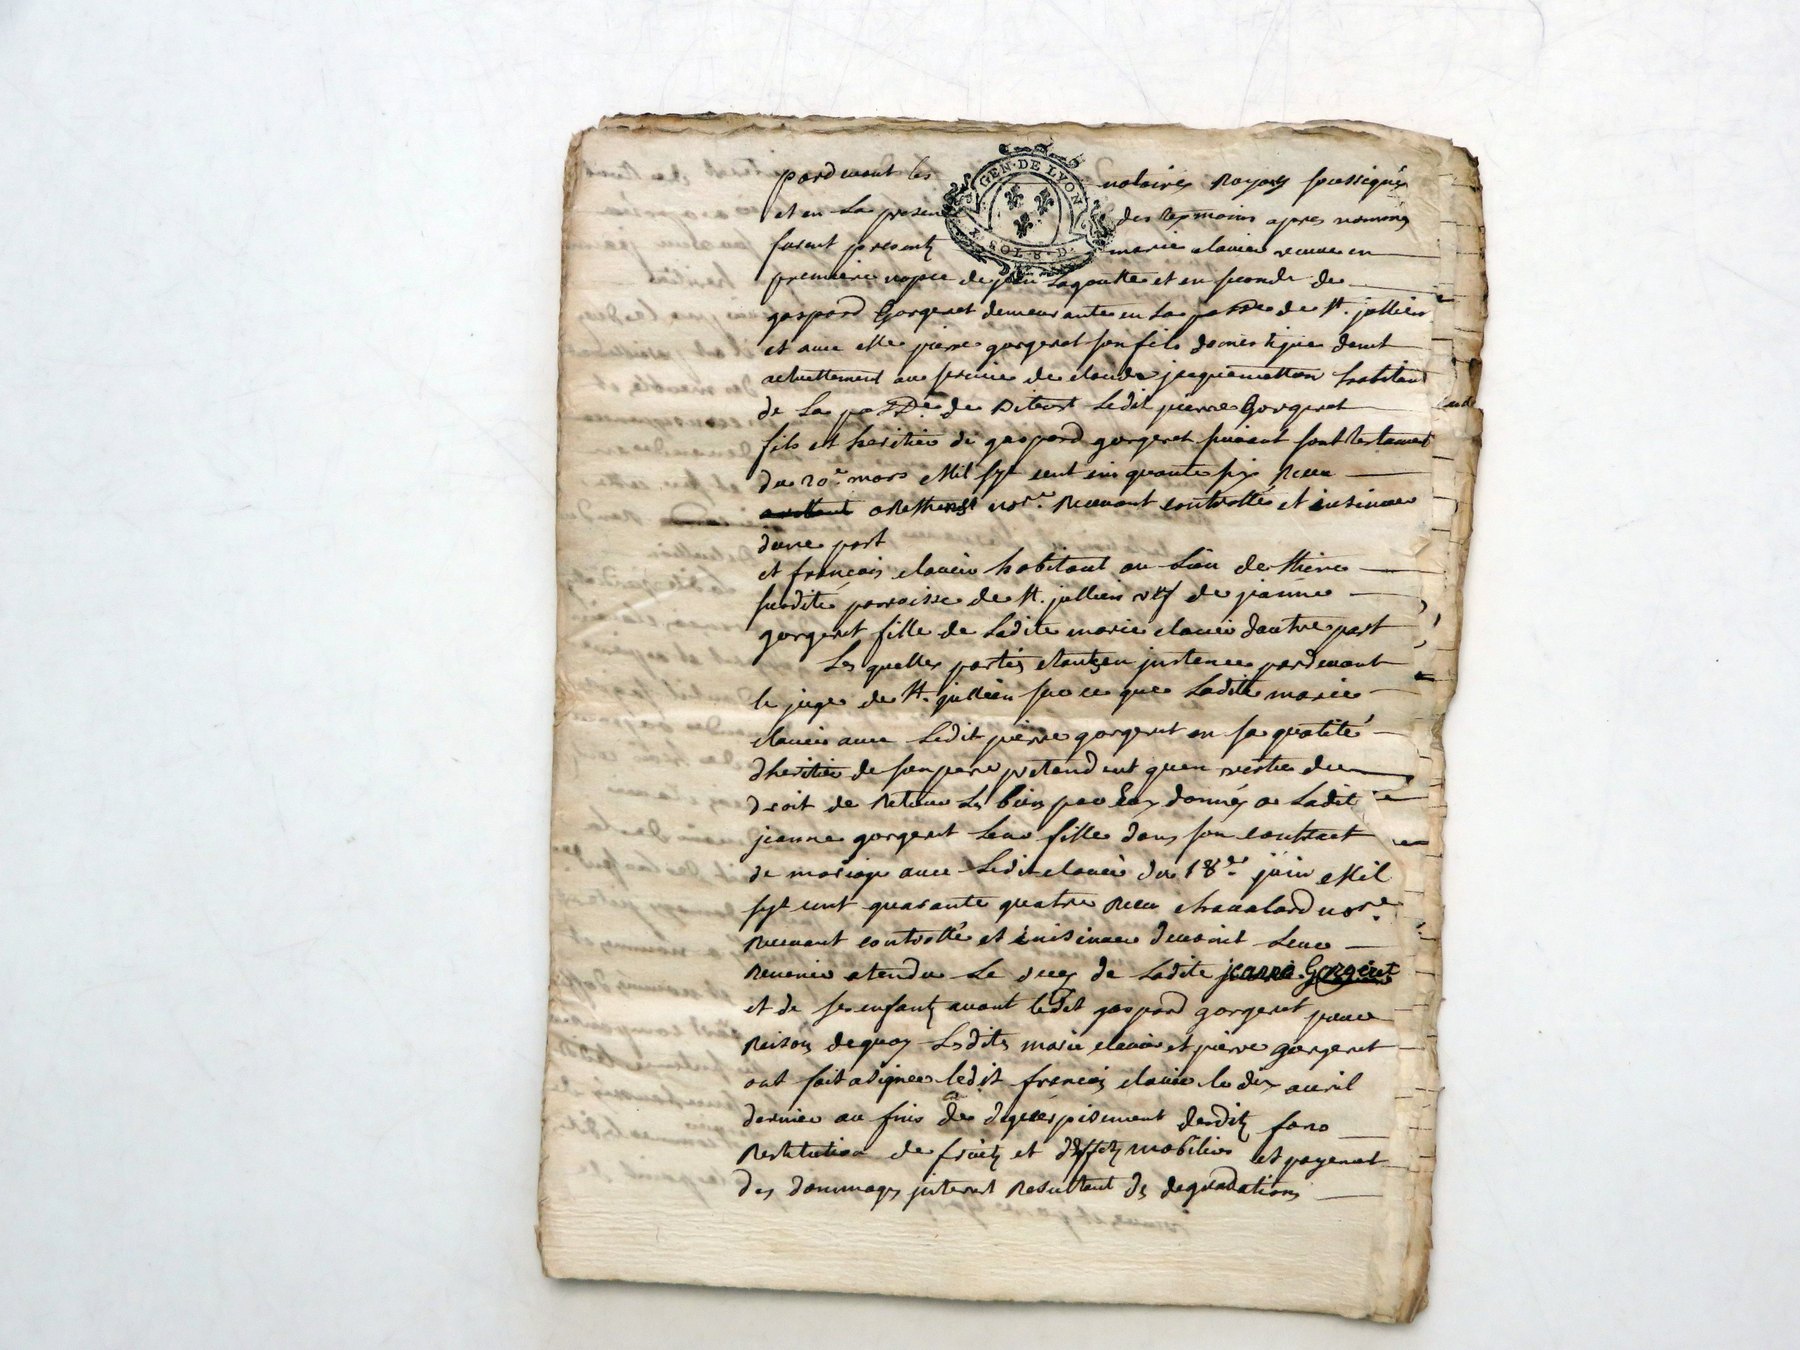 GEN. DE LYON
X. SOLS. D.
pardevant les notaires Royaux soussignés
et en La presence des temoins apres nommés
furent presents marie clavier veuve en
premiere nopce de jean Lagoutte et en seconde de
gaspard Gorgeret demeurante en La paosse de St. jullien
et avec elle pierre gorgeret son fils domestique demt
actuellement au service de claude jacquemetton habitant
de La paosse de Ledit pierre Gorgeret
fils et heritier de gaspard gorgeret suivant sont testament
du 20e mars Mil sept cent cinquante six Receu
nore. Recevant controllé et insinué
dune part
et françois clavier habitant au Lieu de
susdite parroisse de St. jullien vef de jeanne
gorgeret fille de Ladite marie clavier dautre part
Lesquelles parties etants en instence pardevant
le juge de St. jullien sur ce que Ladite marie
clavier avec Ledit pierre gorgeret en sa qualité
dheritier de son pere pretendent quen vertu du
droit de Retour Les biens par Eux donnés a Ladite
jeanne gorgeret Leur fille dans son contract
de mariage avec Ledit clavier du 18e. juin Mil
sept cent quarante quatre Receu chavalard nore.
Recevant controllé et insinué devoient Leur
Revenir atendu Le deces de Ladite jeanne Gorgeret
et de ses enfants avant ledit gaspard gorgeret pour
Raison dequoy Lesdits marie clavier et pierre gorgeret
ont fait asigner ledit françois clavier le dix avril
dernier au fins de deguerpissement desdits fons
Restitution de fruits et deffets mobiliers et payement
des dommages interest Resultant des degradations